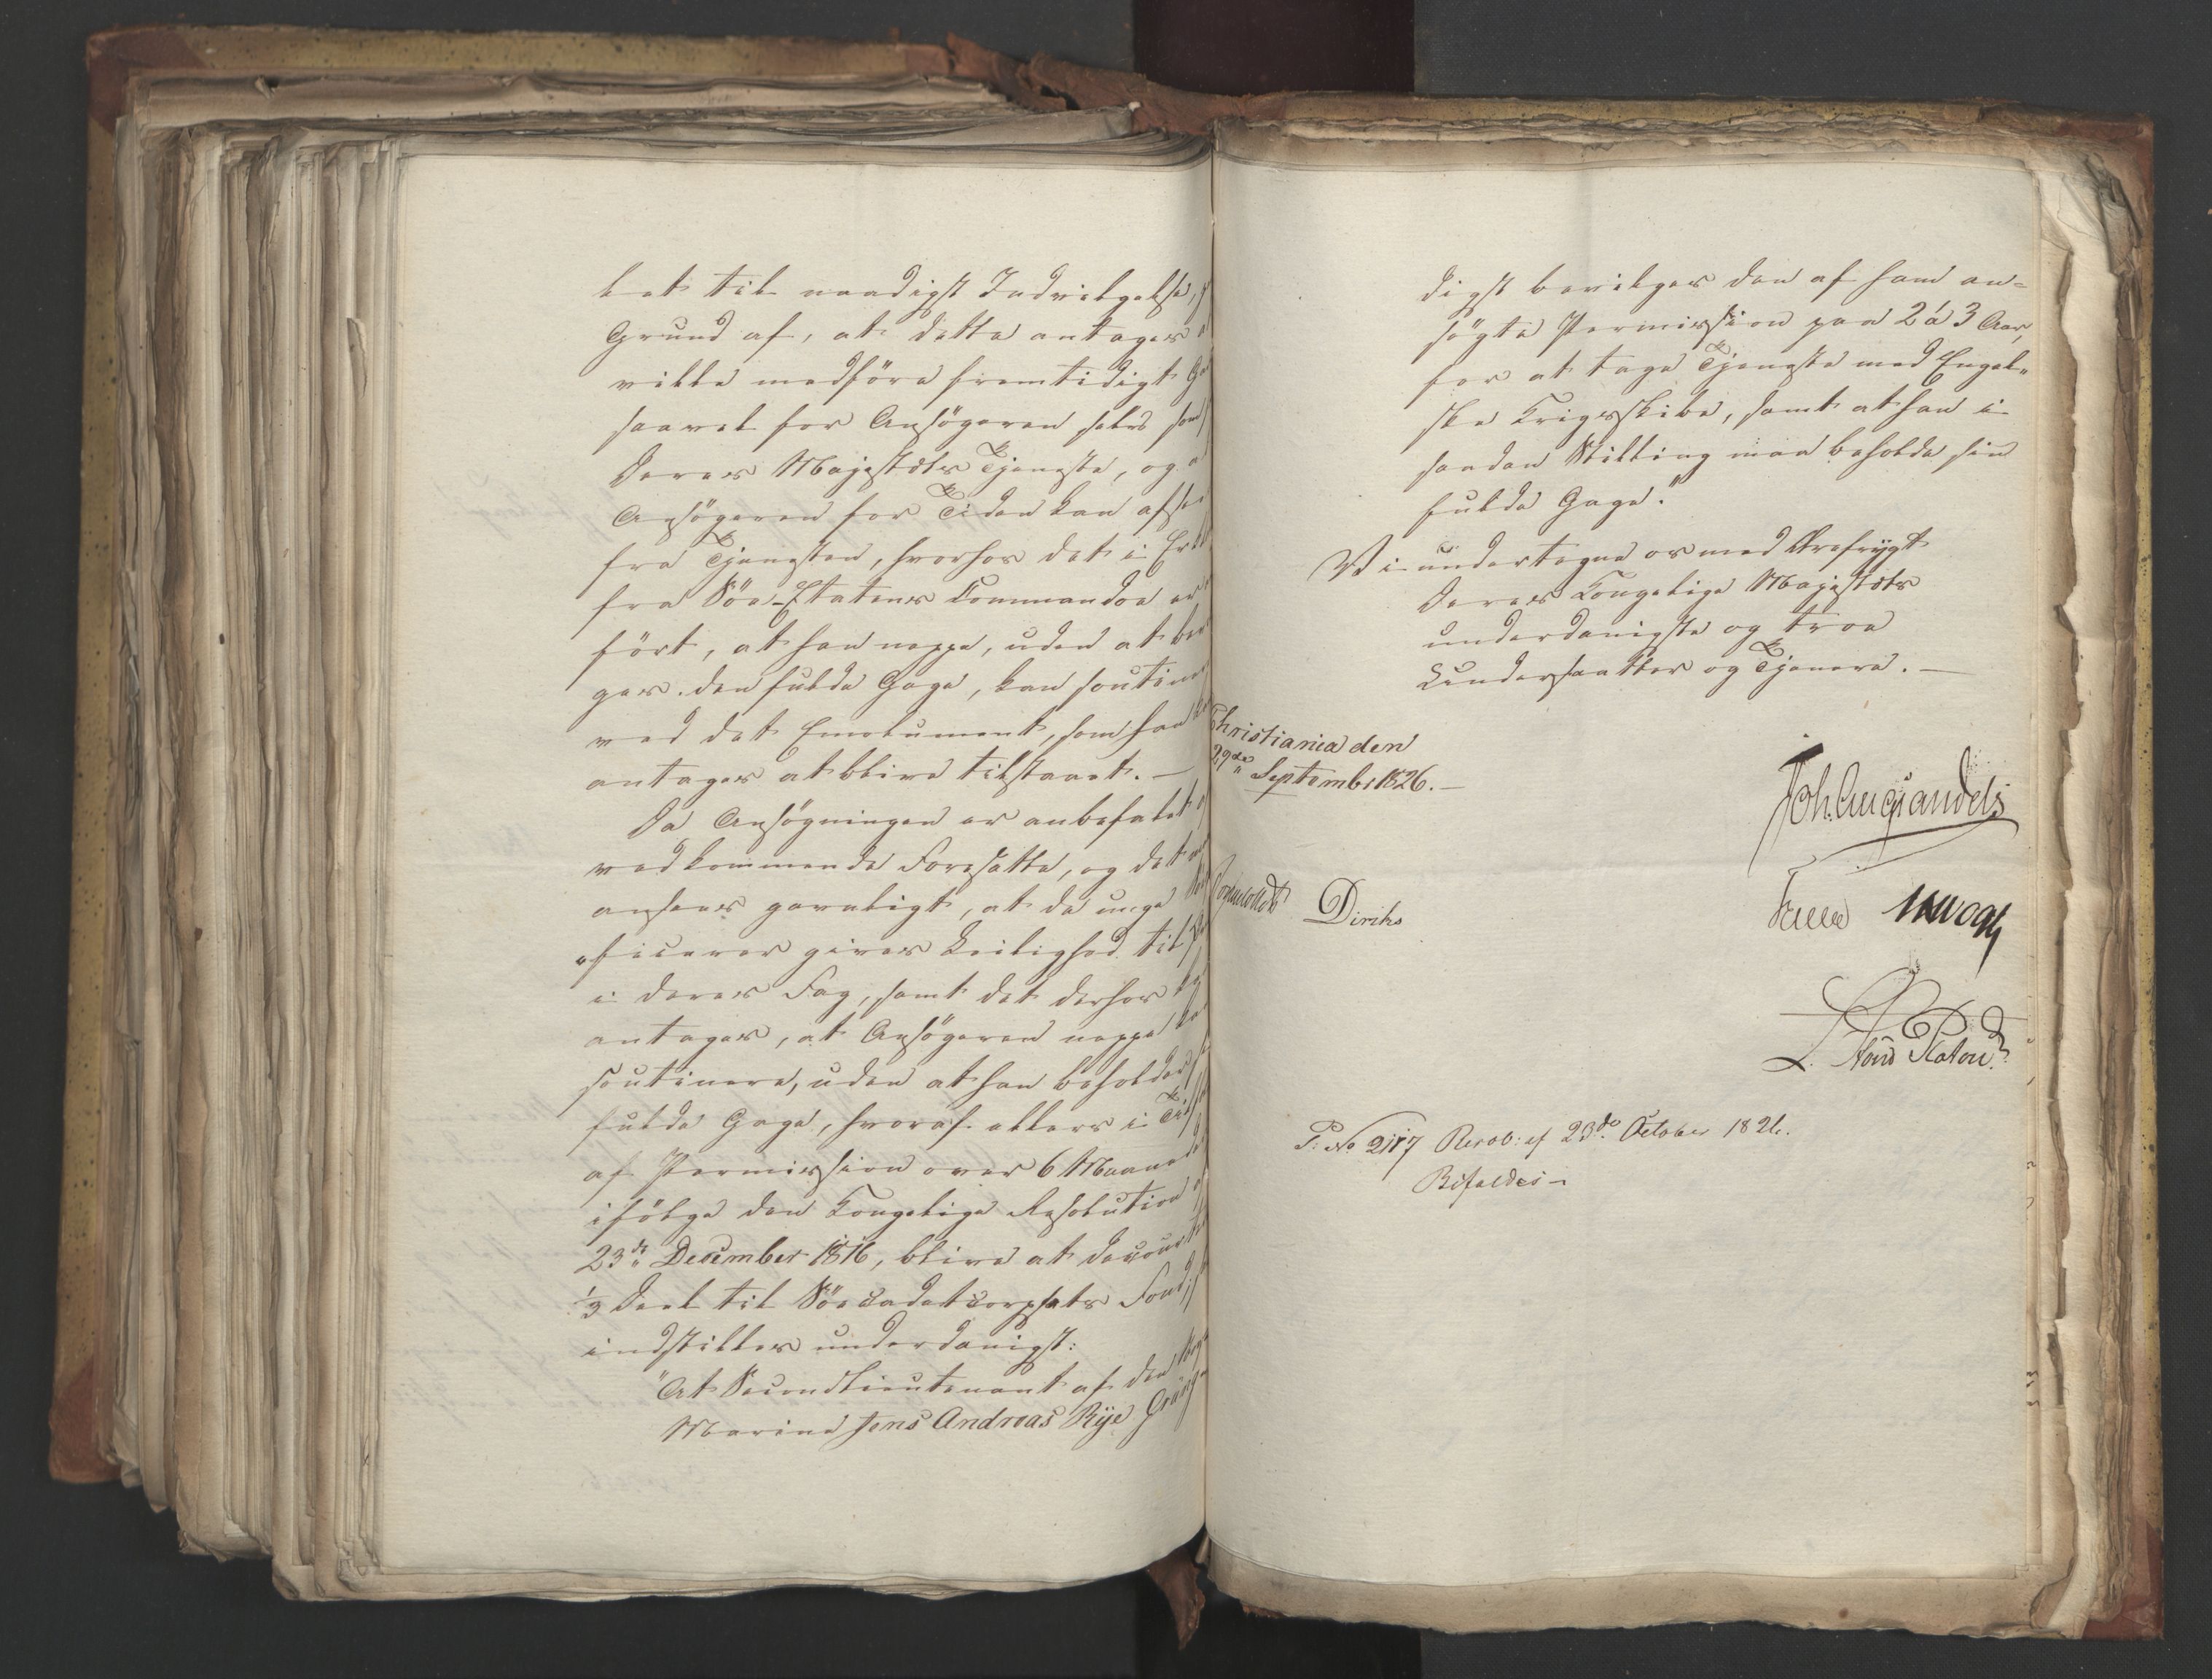 let til naadigst Indvilgelse,
Grund af, at dette antages
ville medföre fremtidigt
saavel for Ansögeren selv som
Deres Majestæts Tjeneste, og
Ansögeren for Tiden kan
fra Tjenesten, hvorhos det i
fra Söe-Etatens Commandoe er
fört, at han neppe, uden at
ges den fulde Gage, kan
ved det Emolument, som han
antages at blive tilstaaet. —
Da Ansögningen er anbefalet
vedkommende Foresatte, og det
ansees gavnligt, at de unge
officerer gives Leilighed til
i deres Fag, samt det derhos
antages, at Ansögeren neppe
soutinere, uden at han beholder
fulde Gage, hvoraf ellers i
af Permission over 6
ifölge den Kongelige Resolution
23de December 1816, blive at
1/3 Deel til Söecadetcorpsets Fond,
indstilles underdanigst:
"At Secondlieutenant af den
Marine Jens Andreas Rÿe
digst bevilges den af ham an=
sögte Permission paa 2 á 3 Aar,
for at tage Tjeneste med Engel„
ske Krigsskibe, samt at han i
saadan Stilling maa beholde sin
fulde Gage."
Vi undertegne os med Ærefrÿgt
Deres Kongelige Majestæts
underdanigste og troe
Undersaatter og Tjenere. —
Christiania den
29de Septembr 1826. —
Joh. Aug Sandels
Diriks
L. Von Platen
P: No 2117 Resol: af 23de October 1826.
Bifaldes